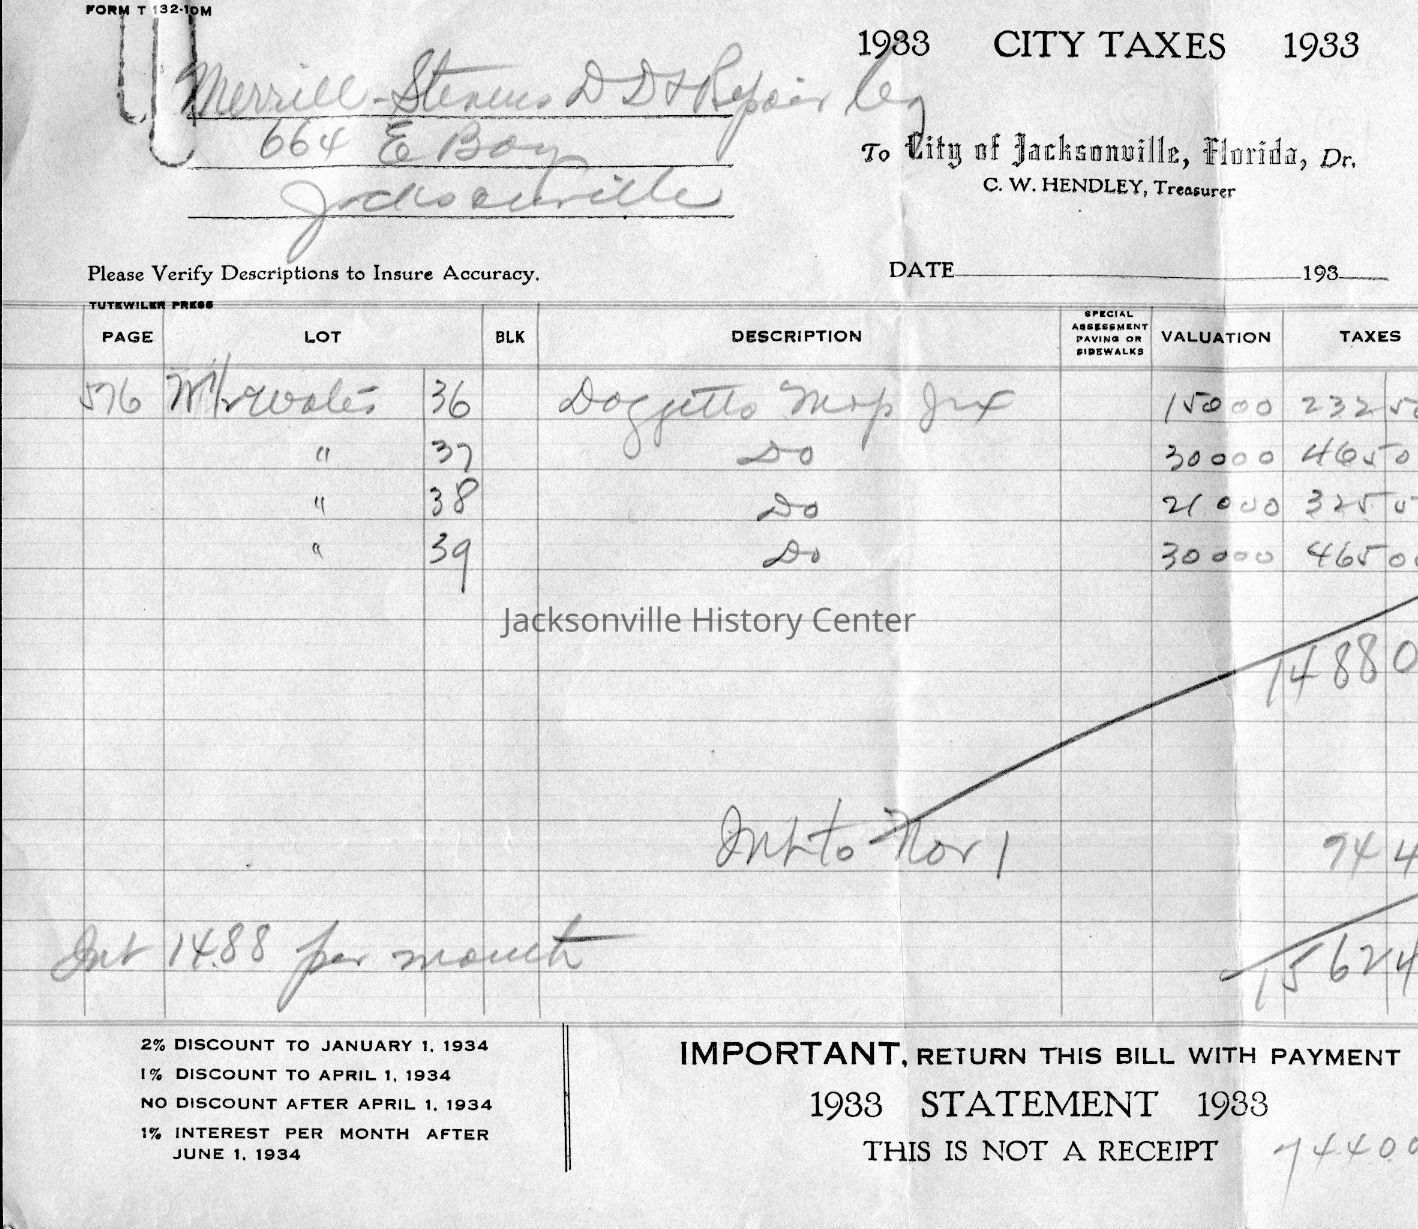 FORM T 132-10M
1933 CITY TAXES 1933
Merrill-Stevens D D & Repair Co
664 E Bay
Jacksonville
To City of Jacksonville, Florida, Dr.
C. W. HENDLEY, Treasurer
Please Verify Descriptions to Insure Accuracy.
DATE 193
TUTEWILER PRESS
PAGE LOT BLK DESCRIPTION SPECIAL ASSESSMENT PAVING OR SIDEWALKS VALUATION TAXES
576 36 Doggetts Map Jax 15000 232 50
" 37 Do 30000 465 0
" 38 Do 21000 325 5
" 39 Do 30000 465 0
Jacksonville History Center
1488 0
Int to Nov 1 74 4
Int 14.88 per month 1562 4
2% DISCOUNT TO JANUARY 1, 1934
1% DISCOUNT TO APRIL 1, 1934
NO DISCOUNT AFTER APRIL 1, 1934
1% INTEREST PER MONTH AFTER
JUNE 1, 1934
IMPORTANT, RETURN THIS BILL WITH PAYMENT
1933 STATEMENT 1933
THIS IS NOT A RECEIPT
74400